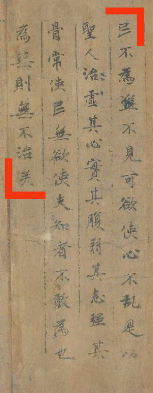 民不為盜不見可欲使心不亂是以
聖人治虛其心實其腹弱其志強其
骨常使民無欲使夫知者不敢為也
為無則無不治矣